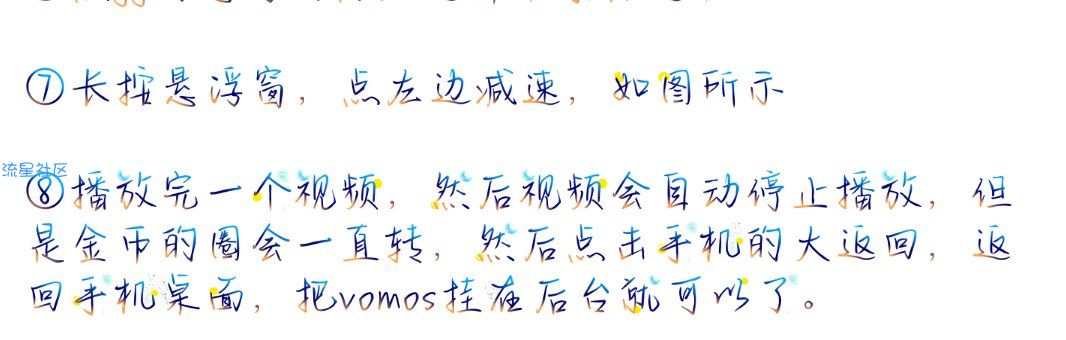 ⑦长按悬浮窗，点左边减速，如图所示
流星社区
⑧播放完一个视频，然后视频会自动停止播放，但
是金币的圈会一直转，然后点击手机的大返回，返
回手机桌面，把vomos挂在后台就可以了。